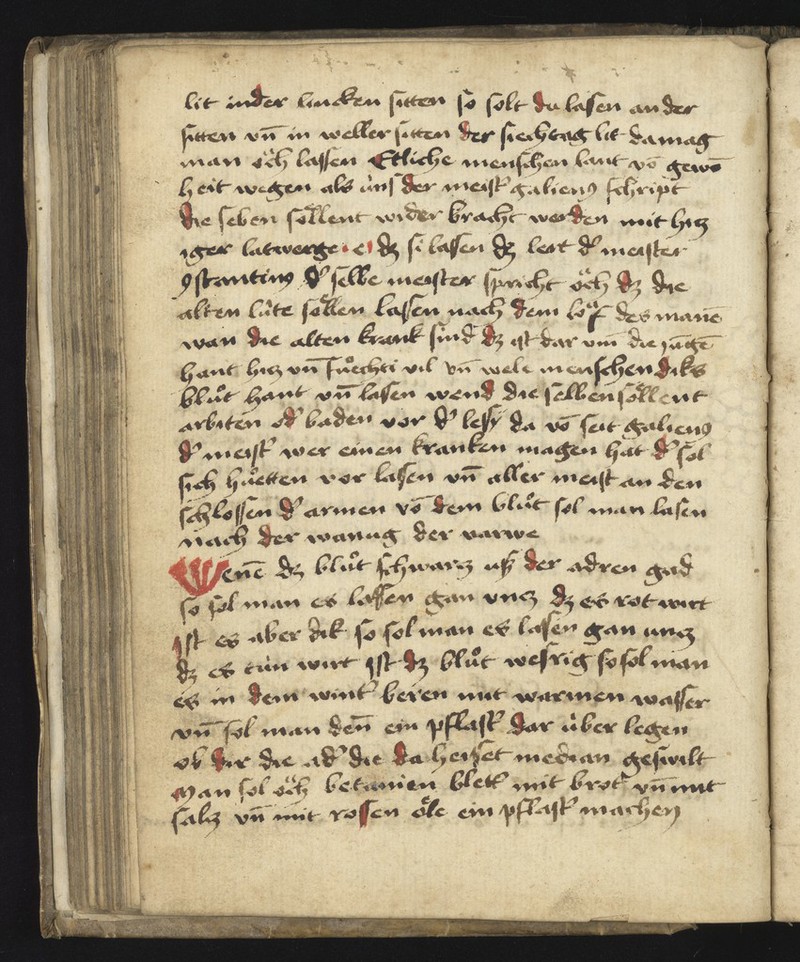 lit in der lincken sitten so solt du lassen an der
sitten vn̄ in weller sitten der siechtag lit da mag
man oͤch lassen Etliche menschen lant vō gewō
heit wegen als ùns der meistʼ galienꝯ schript
die selben soͤllent wider bracht werden mit hitz
iger latwerge e dz si lassen dz lert dʼ meister
ꝯstantinꝯ dʼ selbe meister spricht oͤch dz die
alten lùte soͤllen lassen nach dem loͤf des manē
wan die alten krank sind dz ist dar vm̄ die jūgē
hant hitz vn̄ fuͤechti vil vn̄ wele menschen diks
bluͦt hant vn̄ lasen wend die selben soͤllent
arbiten odʼ baden vor dʼ lessi da vō seit galienꝯ
dʼ meistʼ wer einen kranken magen hat dʼ sol
sich huͤetten vor lassen vn̄ aller meist an den
schlossen dʼ armen vō dem bluͦt sol man lasen
nach der der varwe
Wenē dz bluͦt schwarz uſz der adren gad
so sol man es lassen gan vntz dz es rot wirt
Ist es aber dik so sol man es lasen gan untz
dz es tùn wirt Ist dz bluͦt wesrig so sol man
es in dem wintʼ beren mit warmen wasser
vn̄ sol man den̄ ein pflastʼ dar ùber legen
ob dir die adʼ die da heisset median geswilt
Man sol oͤch betanien blettʼ mit brot vn̄ mit
saltz vn̄ mit rossen oͤle ein pflastʼ machen